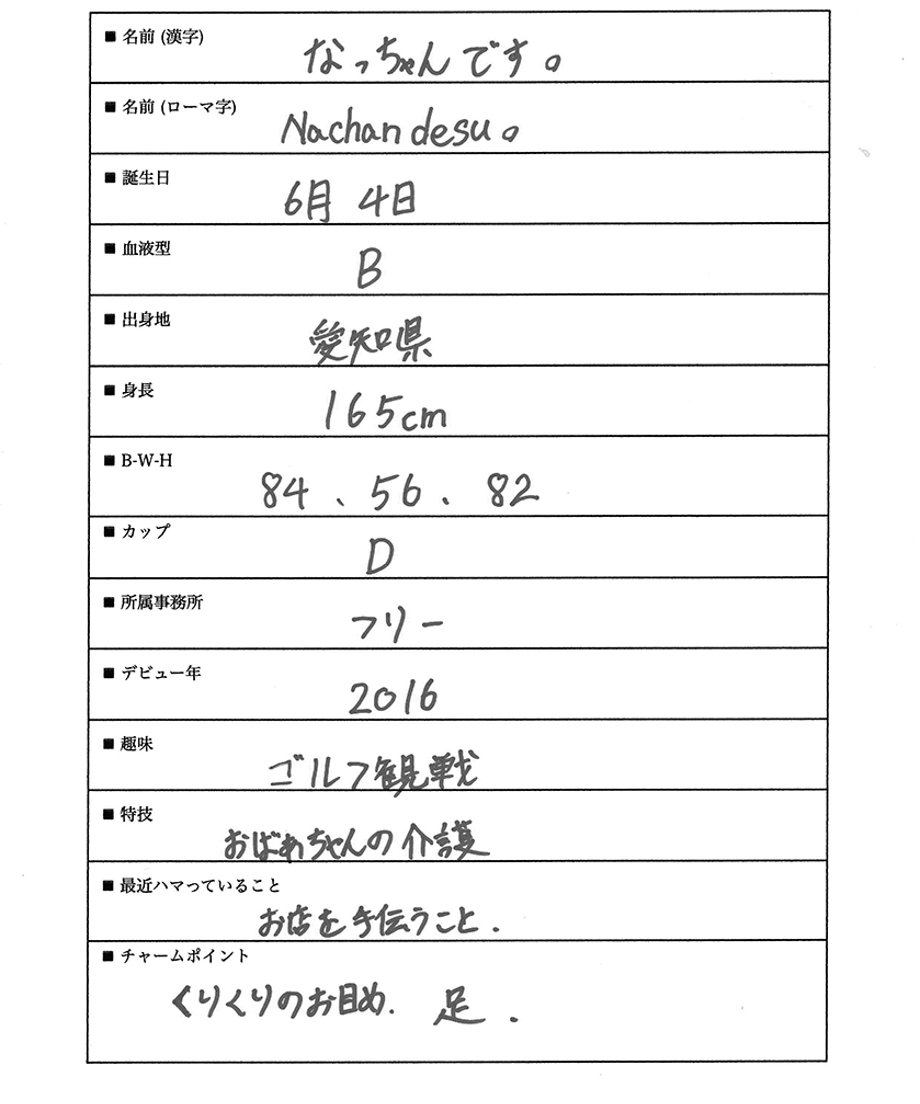 ■ 名前 (漢字)
なっちゃんです。
■ 名前 (ローマ字)
Nachan desu。
■ 誕生日
6月 4日
■ 血液型
B
■ 出身地
愛知県
■ 身長
165cm
■ B-W-H
84 、 56 . 82
■ カップ
D
■ 所属事務所
フリー
■ デビュー年
2016
■ 趣味
ゴルフ観戦
■ 特技
おばあちゃんの介護
■ 最近ハマっていること
お店を手伝うこと.
■ チャームポイント
くりくりのお目め. 足.